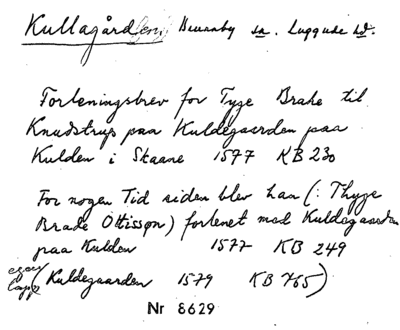 Kullagården, Brunnby sn. Luggude hd.
Forleningsbrev for Tyge Brahe til
Knudstrup paa Kuldegaarden paa
Kulden i Skaane 1577 KB 230
For nogen Tid siden blev han (: Thyge
Brade Ottissøn) forlenet med Kuldegaarden
paa Kulden 1577 KB 249
(Kuldegaarden 1579 KB 765)
Nr 8629